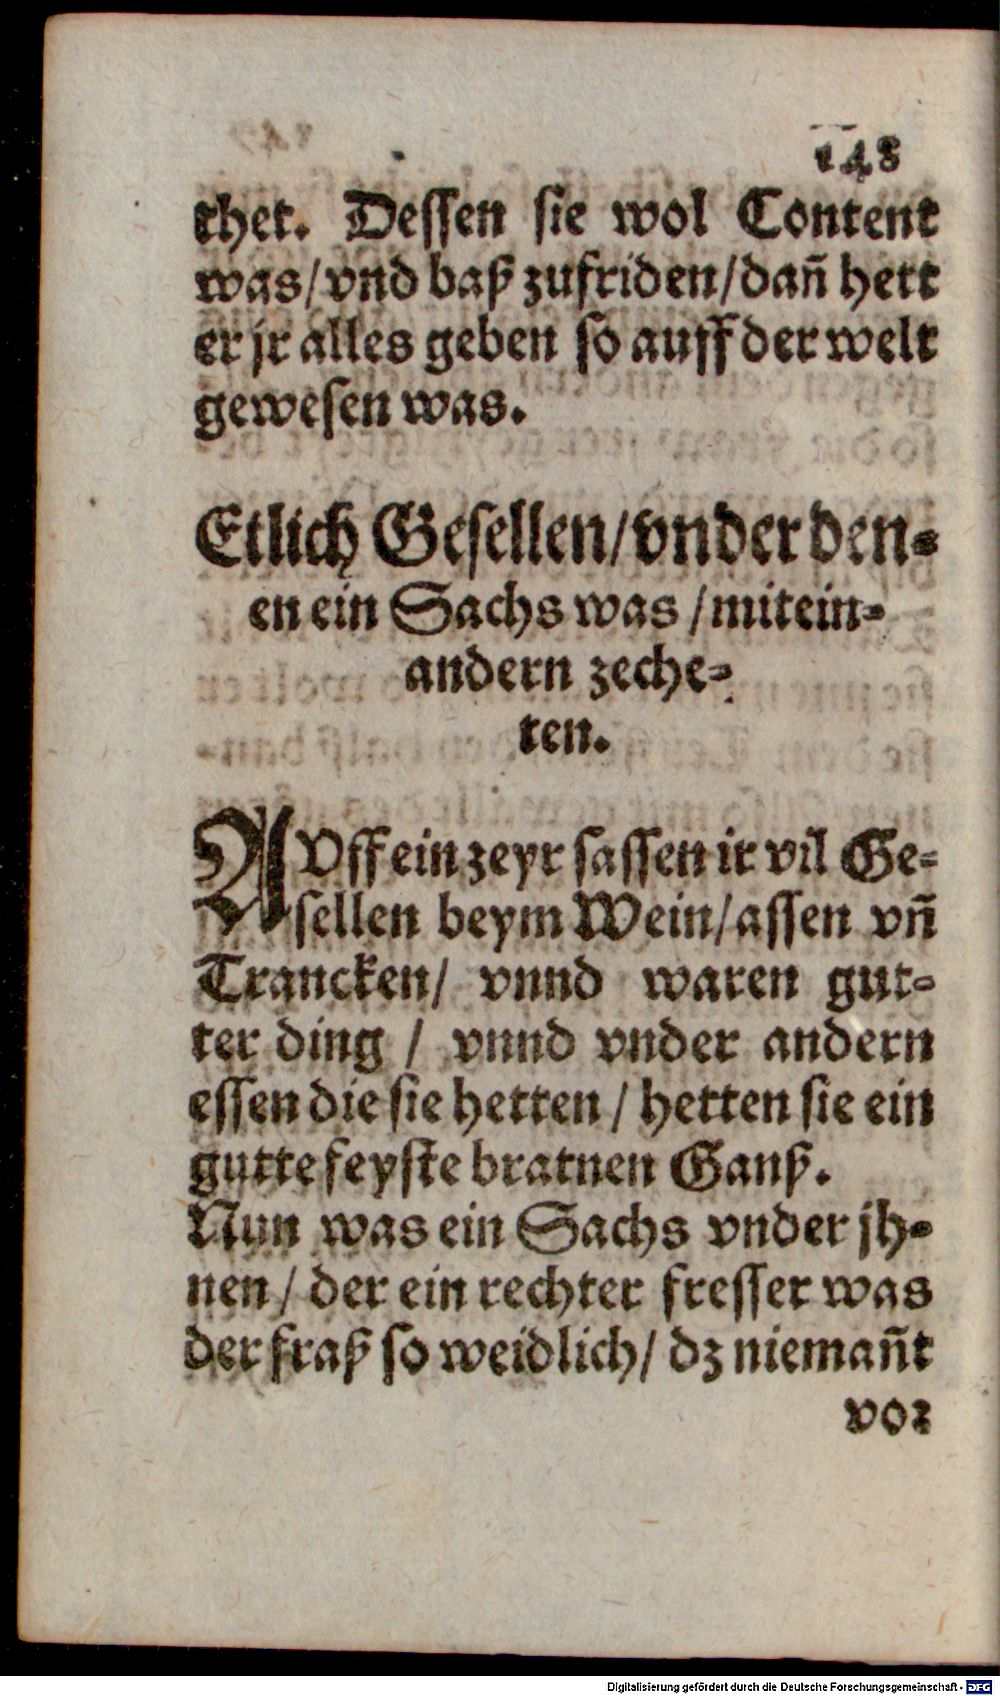 148
thet. Dessen sie wol Content
was/vnd baß zufriden/dañ hett
er jr alles geben so auff der welt
gewesen was.
Etlich Gesellen/vnder den-
en ein Sachs was/mitein-
andern zeche-
ten.
AVff ein zeyt sassen ir vil Ge-
sellen beym Wein/assen vñ
Trancken/ vnnd waren gut-
ter ding / vnnd vnder andern
essen die sie hetten / hetten sie ein
gutte feyste bratnen Ganß.
Nun was ein Sachs vnder jh-
nen / der ein rechter fresser was
der fraß so weidlich/ dz niemañt
vor
Digitalisierung gefördert durch die Deutsche Forschungsgemeinschaft - DFG